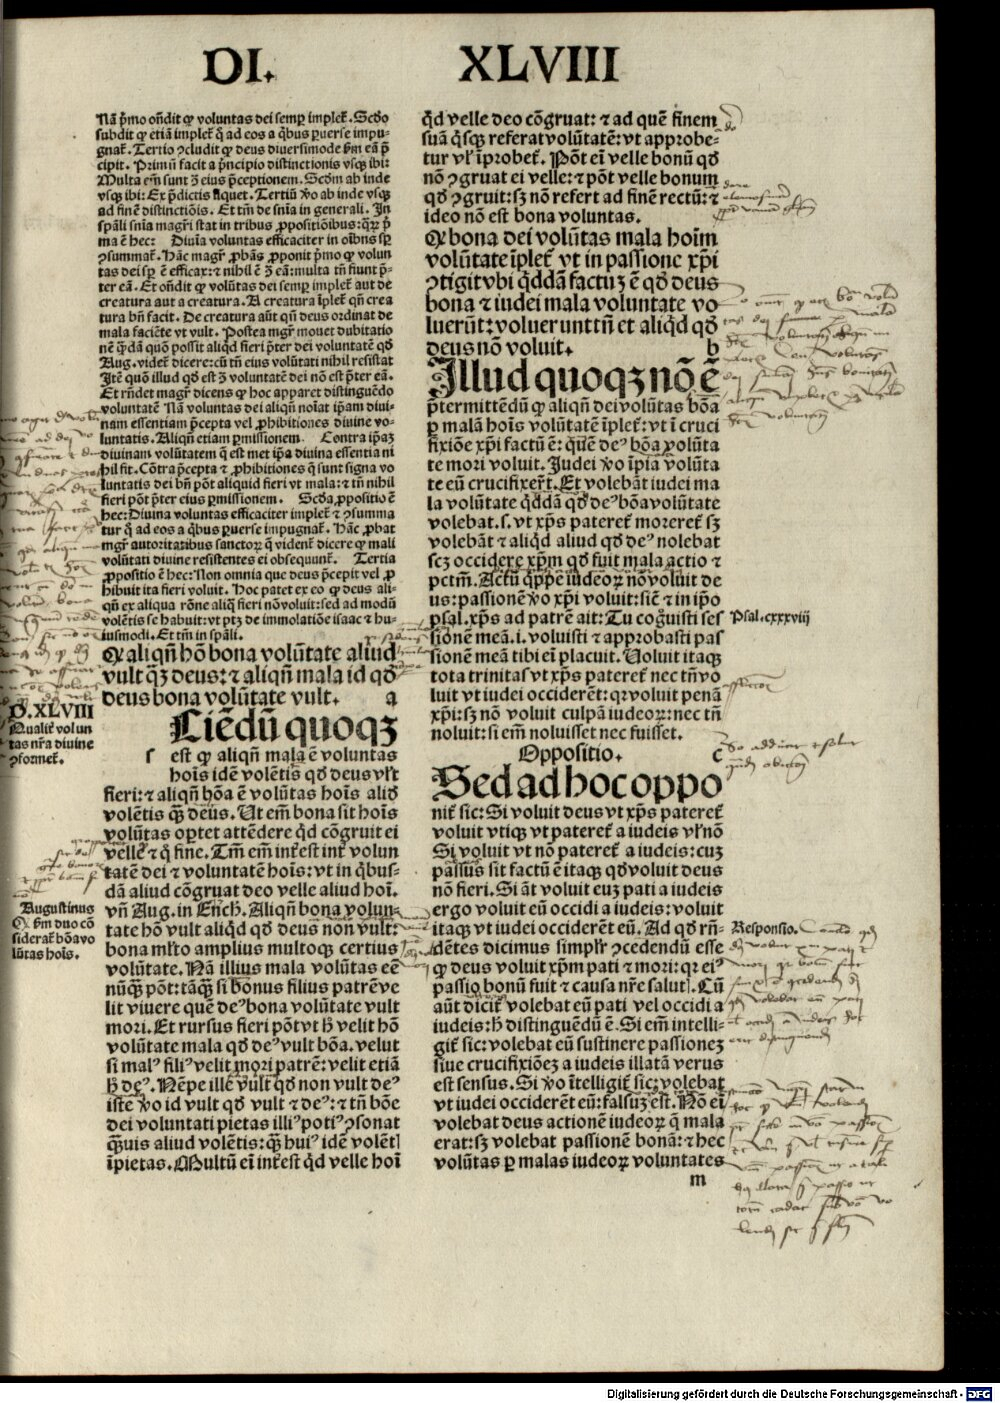 DI. XLVIII
Nā p̄mo on̄dit ꝙ voluntas dei semp̱ implet᷑. Scdo
subdit ꝙ etiā implet᷑ q̄ ad eos a q̇bus ꝑuerse impu-
gnat᷑. Tertio ꝯcludit ꝙ deus diuersimode ẜm ea p̄
cipit. Primū facit a p̄ncipio distinctionis vsq̨ ibi:
Multa em̄ sunt ꝫ eius p̄ceptionem. Scdm ab inde
vsq̨ ibi: Ex p̄dictis liquet. Tertiū ꝟo ab inde vsq̨
ad finē distinctiōis. Et tm̄ de sn̄ia in generali. In
sp̄ali sn̄ia magr̄i stat in tribus ꝓpositiōibus: quaꝝ p̄
ma ē hec: Diuīa voluntas efficaciter in oībus sp̱
ꝯsummat᷑. Hāc magr̄ ꝓbās ꝓponit p̄mo ꝙ volun
tas dei sp̱ ē efficax: ⁊ nihil ē ꝫ eā: multa tn̄ fiunt p̄-
ter eā. Et on̄dit ꝙ volūtas dei semp̱ implet᷑ aut de
creatura aut a creatura. A creatura īplet᷑ qn̄ crea
tura bn̄ facit. De creatura aūt qn̄ deus ordinat de
mala faciēte vt vult. Postea mgr̄ mouet dubitatio
nē q̄dā quō possit aliq̇d fieri p̄ter dei voluntatē qd̄
Aug. videt᷑ dicere: cū tn̄ eius volūtati nihil resistat
Itē quō illud qd̄ est ꝫ voluntatē dei nō est p̄ter eā.
Et rn̄det magr̄ dicens ꝙ hoc apparet distinguēdo
voluntatē Nā voluntas dei aliqn̄ noīat ip̄am diui-
nam essentiam p̄cepta vel ꝓhibitiones diuine vo-
luntatis. Aliqn̄ etiam ꝑmissionem. Contra ip̄aꝫ
diuinam volūtatem q̄ est met ip̄a diuina essentia ni
hil fit. Cōtra p̄cepta ⁊ ꝓhibitiones q̄ sunt signa vo
luntatis dei bn̄ pōt aliquid fieri vt mala: ⁊ tn̄ nihil
fieri pōt p̄ter eius ꝑmissionem. Scda ꝓpositio ē
hec: Diuina voluntas efficaciter implet᷑ ⁊ ꝯsumma
tur q̄ ad eos a q̇bus ꝑuerse impugnat᷑. Hāc ꝓbat
mgr̄ autoritatibus sanctoꝝ q̄ vident᷑ dicere ꝙ mali
volūtati diuine resistentes ei obsequunt᷑. Tertia
ꝓpositio ē hec: Non omnia que deus p̄cepit vel ꝓ
hibuit ita fieri voluit. Hoc patet ex eo ꝙ deus ali-
qn̄ ex aliqua rōne aliq̇d fieri nō voluit: sed ad modū
volētis se habuit: vt ptꝫ de immolatiōe isaac ⁊ hu-
iusmodi. Et tm̄ in sp̄ali.
Ꝙ aliqn̄ hō bona volūtate aliud
vult q̄ꝫ deus: ⁊ aliqn̄ mala id qd̄
deus bona volūtate vult. a
D.XLVIII
Qualit᷑ volun
tas nr̄a diuine
ꝯformet᷑.
Ciēdū quoqꝫ
s est ꝙ aliqn̄ mala ē voluntas
hoīs idē volētis qd̄ deus vl̄t
fieri: ⁊ aliqn̄ bōa ē volūtas hoīs alid̄
volētis q̄ꝫ deus. Ut em̄ bona sit hoīs
volūtas oꝑtet attēdere q̇d cōgruit ei
velle ⁊ q̊ fine. Tm̄ em̄ int̄est int̄ volun
tatē dei ⁊ voluntatē hoīs: vt in q̇bus-
dā aliud cōgruat deo velle aliud hoī.
Augustinus
Ꝙ ẜm duo cō
siderat᷑ bōa vo
lūtas hoīs.
vn̄ Aug. in Ench̄. Aliqn̄ bona volun-
tate hō vult aliqd̄ qd̄ deus non vult:
bona ml̄to amplius multoq̨ certius
volūtate. Nā illius mala volūtas eē
nūq̄ꝫ pōt: tāq̄ꝫ si bonus filius patrē ve
lit viuere quē deꝰ bona volūtate vult
mori. Et rursus fieri pōt vt h̄ velit hō
volūtate mala qd̄ deꝰ vult bōa. velut
si malꝰ filiꝰ velit mori patrē: velit etiā
h̄ deꝰ. Nēpe ille vult qd̄ non vult deꝰ
iste ꝟo id vult qd̄ vult ⁊ deꝰ: ⁊ tn̄ bōe
dei voluntati pietas illiꝰ potiꝰ ꝯsonat
q̄ꝫuis aliud volētis: q̄ꝫ huiꝰ idē volēt̄
īpietas. Multū ei int̄est q̇d velle hoī
q̇d velle deo cōgruat: ⁊ ad quē finem
suā q̇sq̨ referat volūtatē: vt approbe-
tur vl̄ īprobet᷑. Pōt ei velle bonū qd̄
nō ꝯgruat ei velle: ⁊ pōt velle bonum
qd̄ ꝯgruit: sꝫ nō refert ad finē rectū: ⁊
ideo nō est bona voluntas.
Ꝙ bona dei volūtas mala hoīm
volūtate īplet᷑ vt in passione xp̄i
ꝯtigit vbi q̇ddā factuꝫ ē qd̄ deus
bona ⁊ iudei mala voluntate vo
luerūt: voluerunt tn̄ et aliq̇d qd̄
deus nō voluit. b
Illud quoqꝫ nō ē
p̄termittēdū ꝙ aliqn̄ dei volūtas bōa
ꝑ malā hoīs volūtatē īplet᷑: vt ī cruci
fixiōe xp̄i factū ē: quē deꝰ bōa volūta
te mori voluit. Iudei ꝟo īpia volūta
te eū crucifixer̄t. Et volebāt iudei ma
la volūtate q̇ddā qd̄ deꝰ bōa volūtate
volebat. s. vt xp̄s pateret᷑ moreret᷑ sꝫ
volebāt ⁊ aliq̇d aliud qd̄ deꝰ nolebat
scꝫ occidere xp̄m qd̄ fuit mala actio ⁊
pctm̄. Actū q̇ppe iudeoꝝ nō voluit de
us: passionē ꝟo xp̄i voluit: sic̄ ⁊ in ip̄o
psal. xp̄s ad patrē ait: Tu cogn̄isti ses
Psal.cxxxviij
sionē meā. i. voluisti ⁊ approbasti pas
sionē meā tibi ei placuit. Uoluit itaq̨
tota trinitas vt xp̄s pateret᷑ nec tn̄ vo
luit vt iudei occiderēt: qꝛ voluit penā
xp̄i: sꝫ nō voluit culpā iudeoꝝ: nec tn̄
noluit: si em̄ noluisset nec fuisset.
Oppositio. c
Sed ad hoc oppo
nit᷑ sic: Si voluit deus vt xp̄s pateret᷑
voluit vtiq̨ vt pateret᷑ a iudeis vl̄ nō
Si voluit vt nō pateret᷑ a iudeis: cuꝫ
passus sit factū ē itaq̨ qd̄ voluit deus
nō fieri. Si āt voluit euꝫ pati a iudeis
ergo voluit eū occidi a iudeis: voluit
itaq̨ vt iudei occiderēt eū. Ad qd̄ rn̄-
Responsio.
dētes dicimus simpl̄r ꝯcedendū esse
ꝙ deus voluit xp̄m pati ⁊ mori: qꝛ eiꝰ
passio bonū fuit ⁊ causa nr̄e salut̄. Cū
aūt dicit᷑ volebat eū pati vel occidi a
iudeis: h̄ distinguēdū ē. Si em̄ intelli-
git᷑ sic: volebat eū sustinere passioneꝫ
siue crucifixiōeꝫ a iudeis illatā verus
est sensus. Si ꝟo ītelligit᷑ sic: volebat
vt iudei occiderēt eū: falsuꝫ est. Nō ei
volebat deus actionē iudeoꝝ q̄ mala
erat: sꝫ volebat passionē bonā: ⁊ hec
volūtas ꝑ malas iudeoꝝ voluntates
m
Digitalisierung gefördert durch die Deutsche Forschungsgemeinschaft - DFG